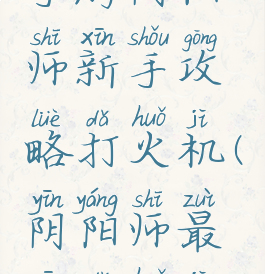 shī xīn shǒu gōng
师新手攻
lüè dǎ huǒ jī
略打火机(
yīn yáng shī zuì
阴阳师最